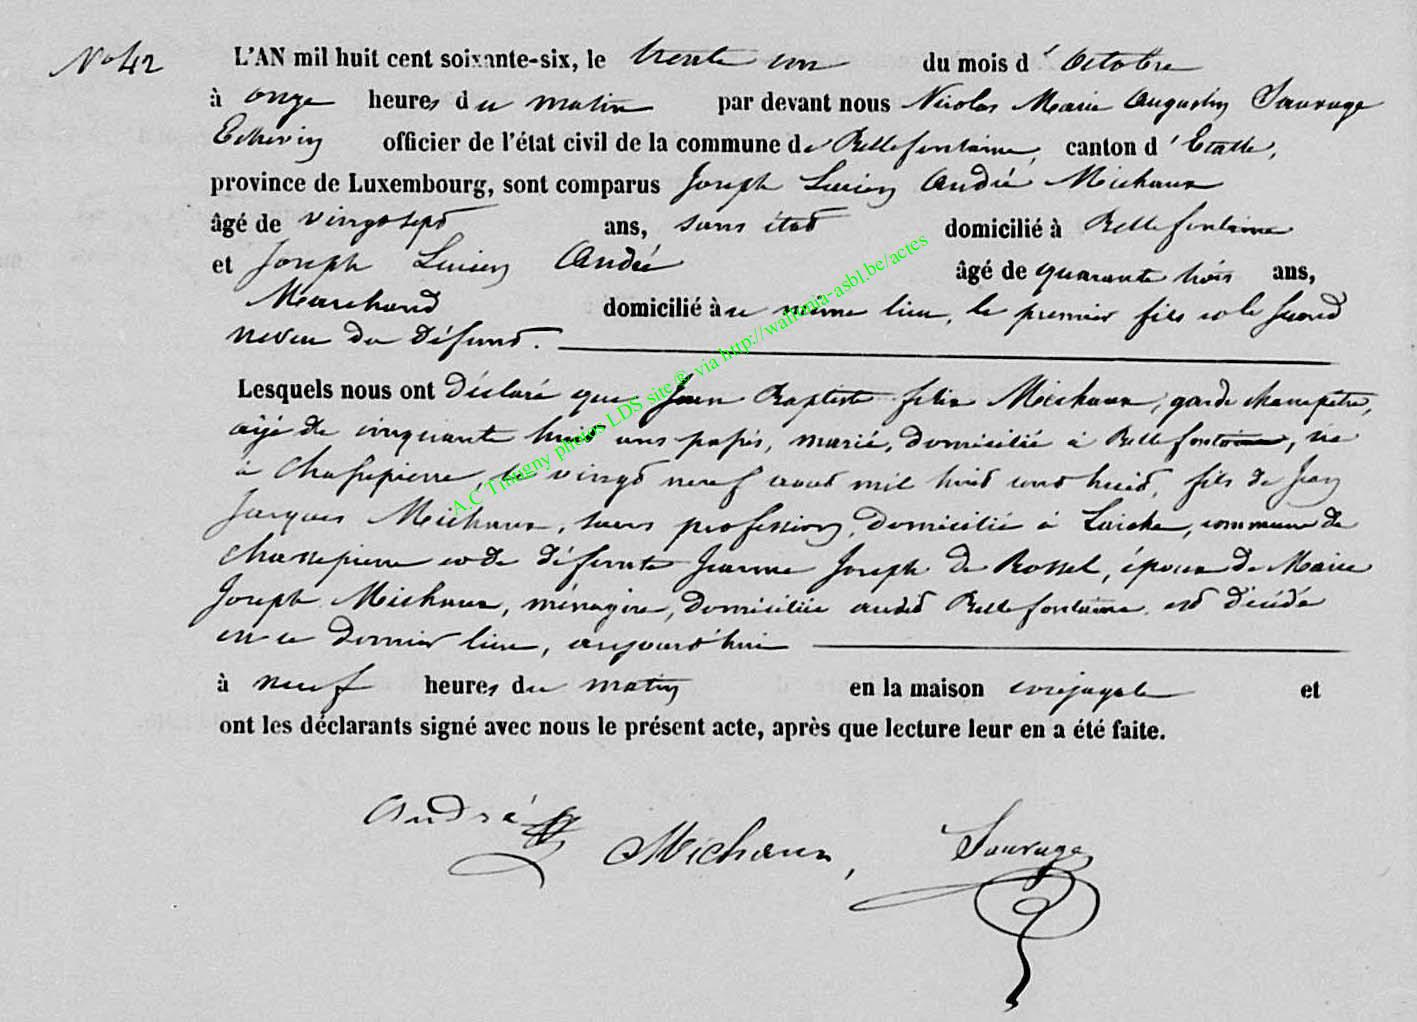 No 42
L'AN mil huit cent soixante-six, le trente un du mois d'Octobre
à onze heures du matin par devant nous Nicolas Marie Augustin Sauvage
Echevin officier de l'état civil de la commune de Bellefontaine, canton d'Etalle,
province de Luxembourg, sont comparus Joseph Lucien André Michaux
âgé de vingt sept ans, sans état domicilié à Bellefontaine
et Joseph Lucien André âgé de quarante trois ans,
Marchand domicilié à u même lieu, le premier fils et le second
neveu du défunt.
Lesquels nous ont déclaré que Jean Baptiste felix Michaux, garde champêtre,
agé de cinquante huit ans passés, marié, domicilié à Bellefontaine, né
à Chassepierre, le vingt neuf aout mil huit cent huit, fils de Jean
Jacques Michaux, sans profession, domicilié à Laiche, commune de
Chassepierre et de défunte Jeanne Joseph de Rossel, époux de Marie
Joseph Michaux, ménagère, domiciliée audit Bellefontaine, est décédé
en ce dernier lieu, aujourd'hui
à neuf heures du matin en la maison conjugale et
ont les déclarants signé avec nous le présent acte, après que lecture leur en a été faite.
André Michaux, Sauvage
A.C Tintigny photos LDS site ® via http://wallonia-asbl.be/actes